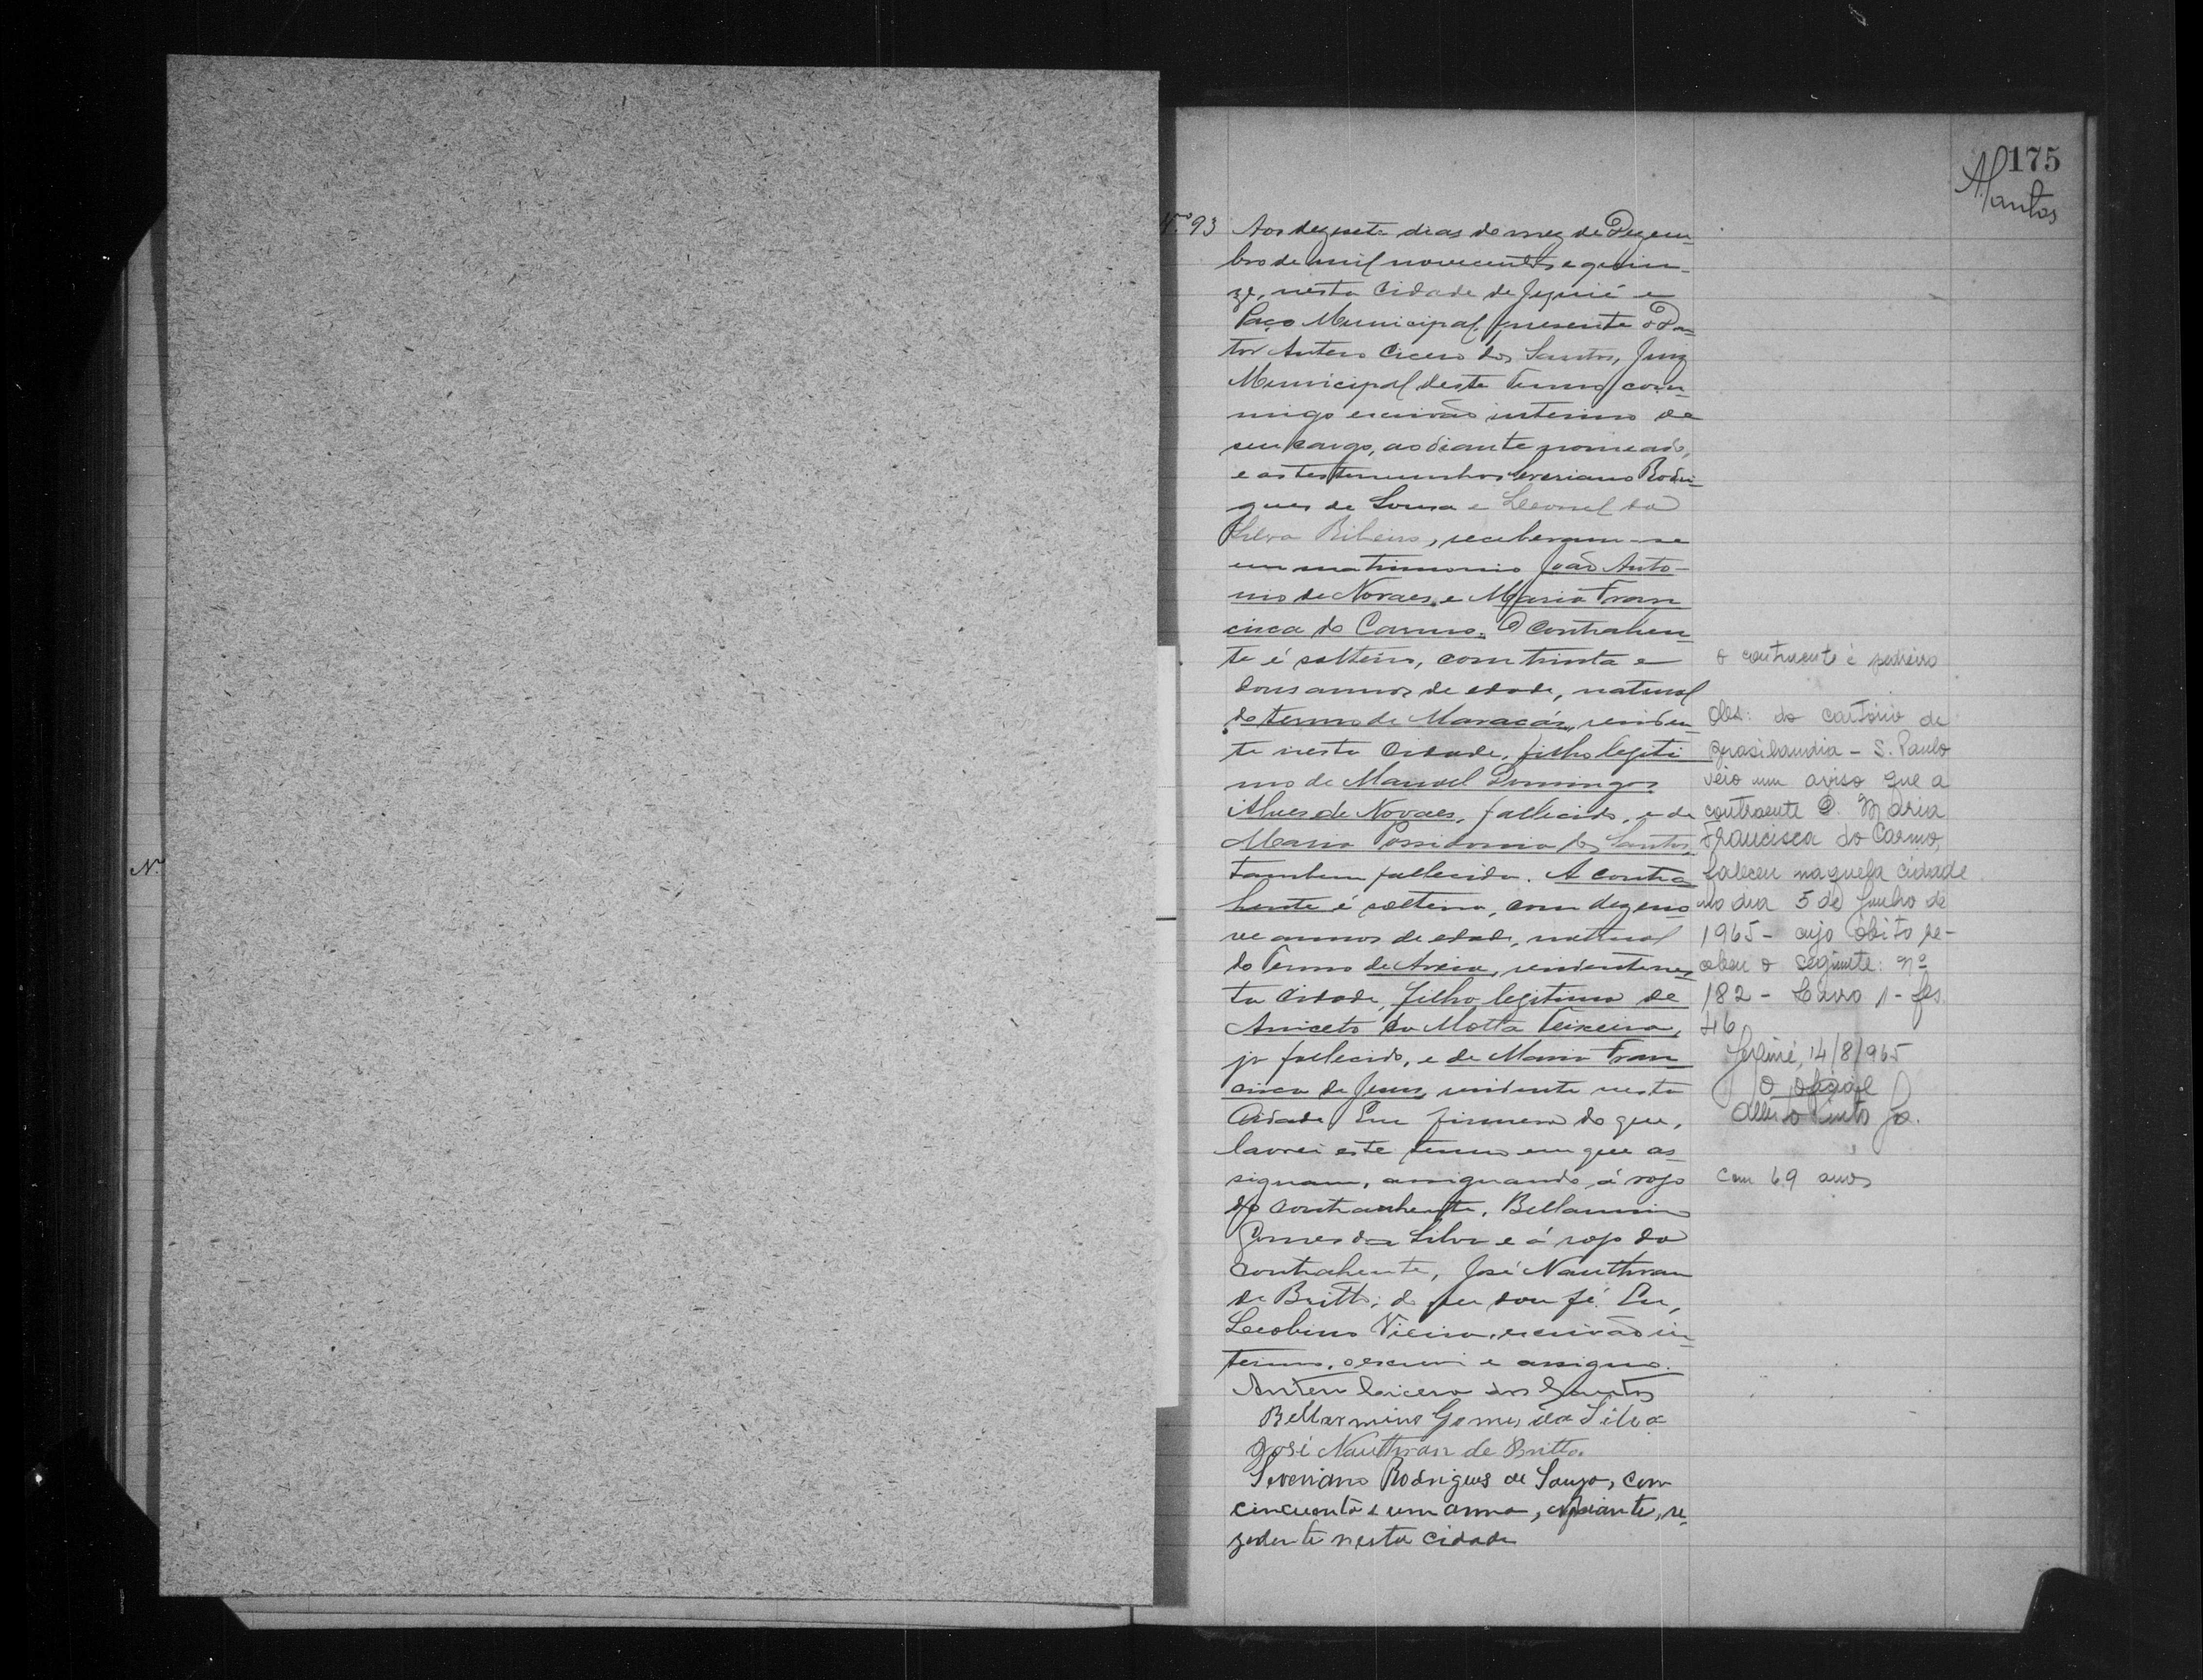 175
Santos
Nº 93 Aos dezesete dias do mez de Dezem-
bro de mil novecentos e quin-
ze, nesta Cidade de Jequié e
Paço Municipal, presente o Dou-
tor Antero Cicero dos Santos, Juiz
Municipal deste termo, com-
migo escrivão interino de
seu cargo, ao diante nomeado,
e as testemunhas Severiano Rodri-
gues de Sousa e Leonel da
Silva Ribeiro, receberam-se
em matrimonio João Anto-
nio de Novaes, e Maria Fran
cisca do Carmo. O contrahen-
te é solteiro, com trinta e
dous annos de edade, natural
do termo de Maracás, residen-
te nesta Cidade, filho legiti
mo de Manoel Domingos
Alves de Novaes, fallecido, e de
Maria Possidonia dos Santos,
tambem fallecida. A contra-
hente é solteira, com dezeno
ve annos de edade, natural
do Termo de Areia, residente nes
ta Cidade, filha legitima de
Aniceto da Motta Teixeira,
ja fallecido, e de Maria Fran
cisca de Jesus, residente nesta
Cidade. Em firmeza do que,
lavrei este termo em que as-
signam, assignando á rogo
do contrahente, Bellarmino
Gomes da Silva e á rogo da
contrahente, José Nauthran
de Britto; do que dou fé. Eu,
Leolino Vieira, escrivão in-
terino, o escrevi e assigno.
Antero Cicero dos Santos
Bellarmino Gomes da Silva
José Nauthran de Britto
Severiano Rodrigues de Souza, com
cincuenta e um anno, , re-
zedente nesta cidade
o contraente é pedreiro
Obs: do cartório de
Brasilandia - S. Paulo
veio um aviso que a
contraente D. Maria
Francisca do Carmo,
faleceu naquela cidade
no dia 5 de Junho de
1965 - cujo óbito re-
cebeu o seguinte: nº
182 - Livro 1 - fls.
46
Jequié, 14/8/965
O oficial
Pinto Jr.
com 69 anos
Nº